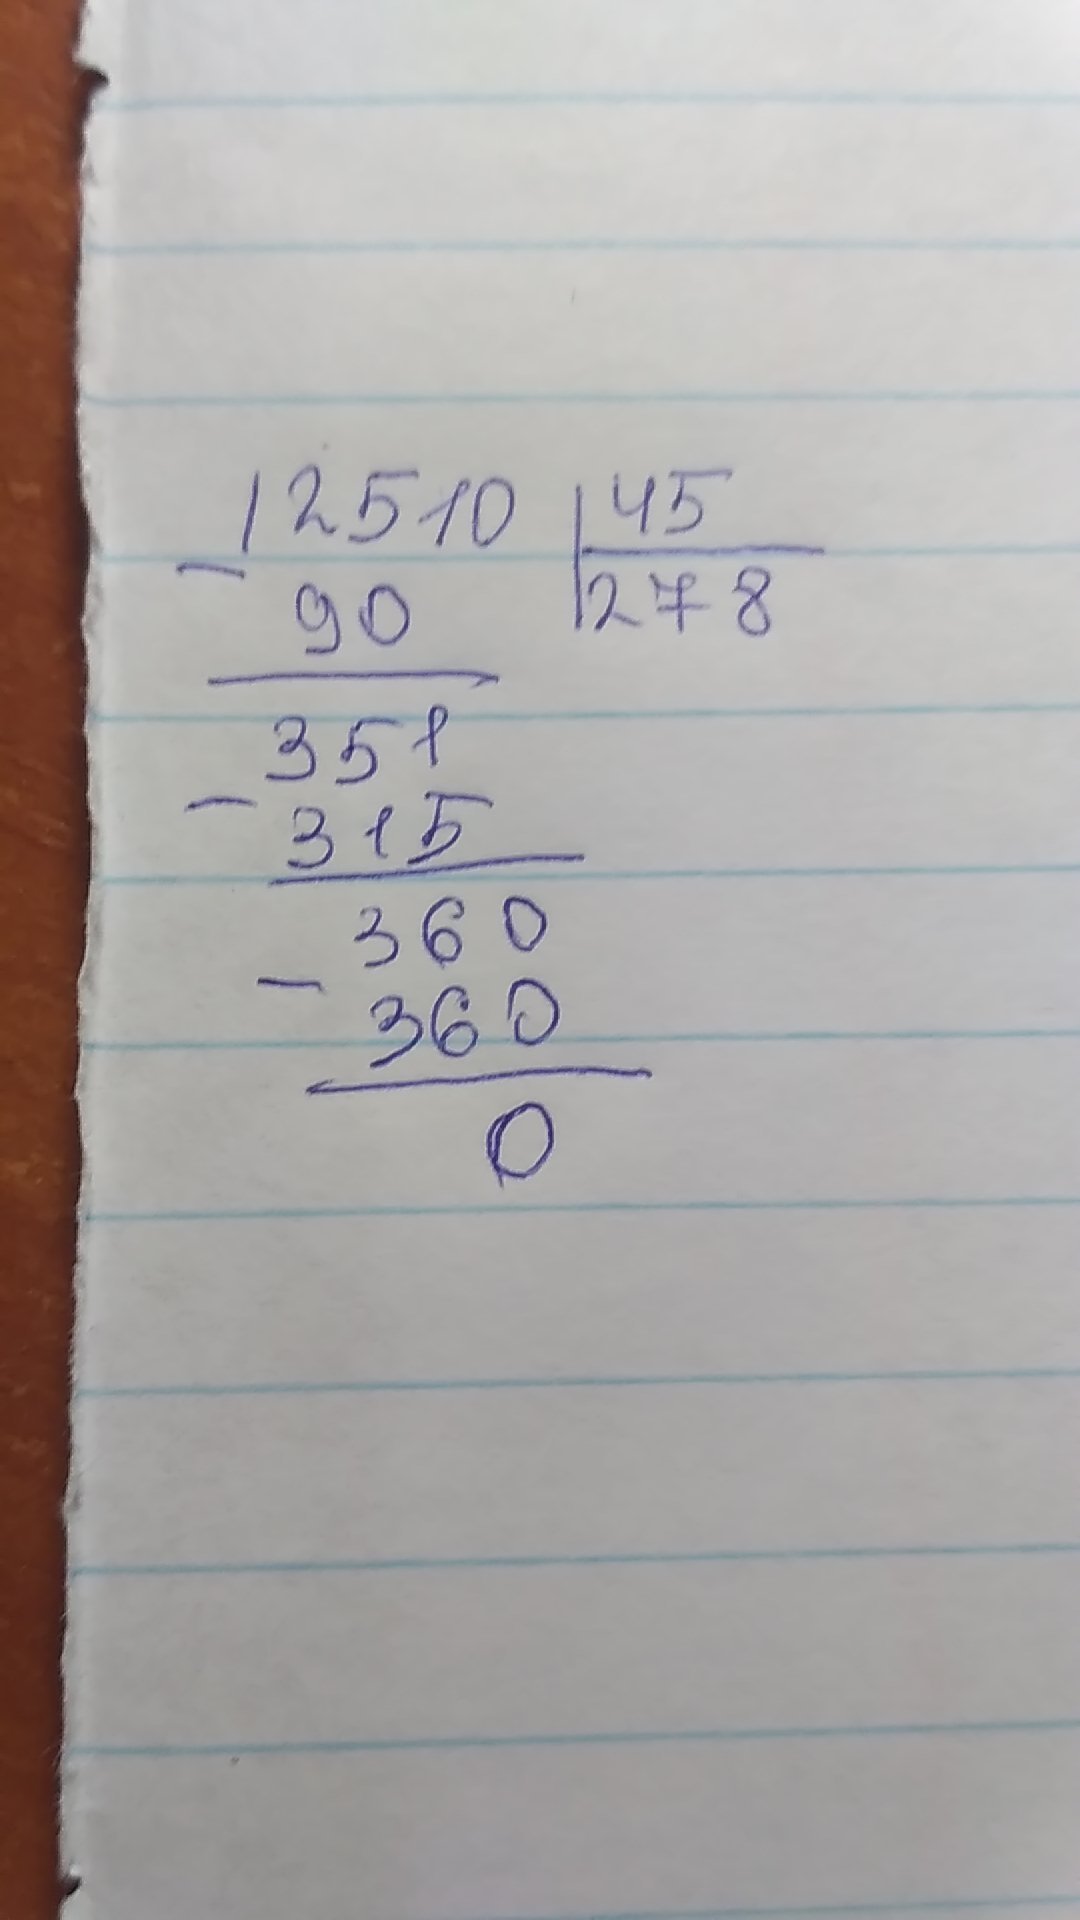 12510 45
- 90 278
351
- 315
360
- 360
0